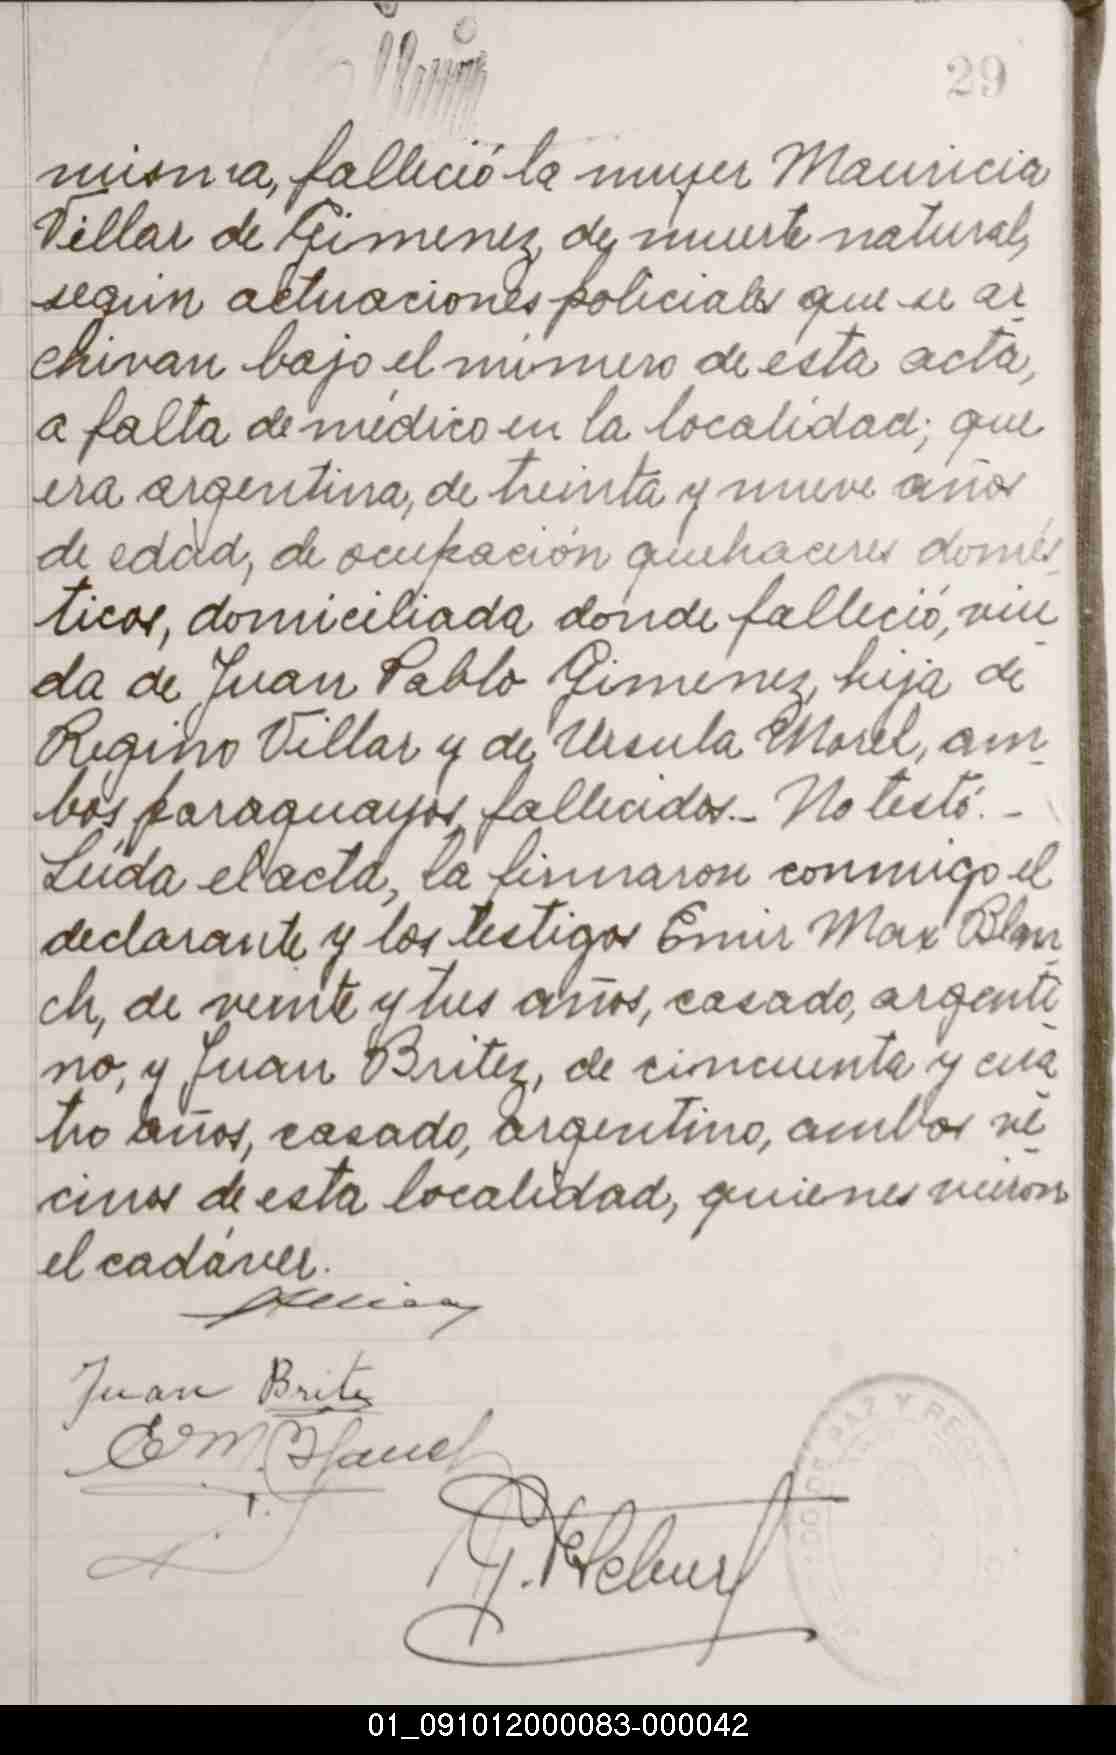 29
misma, falleció la mujer Mauricia
Villar de Gimenez, de muerte natural,
según actuaciones policiales que se ar
chivan bajo el número de esta acta,
a falta de médico en la localidad; que
era argentina, de treinta y nueve años
de edad, de ocupación quehaceres domés
ticos, domiciliada donde falleció, viu
da de Juan Pablo Gimenez, hija de
Regino Villar y de Ursula Morel, am
bos paraguayos, fallecidos.- No testó.-
Leída el acta, la firmaron conmigo el
declarante y los testigos Emir Max Blan
ch, de veinte y tres años, casado, argenti
no, y Juan Britez, de cincuenta y cua
tro años, casado, argentino, ambos ve
cinos de esta localidad, quienes vieron
el cadáver.
Juan Britez
E. M. Blanch
DO DE PAZ Y REGI
01_091012000083-000042